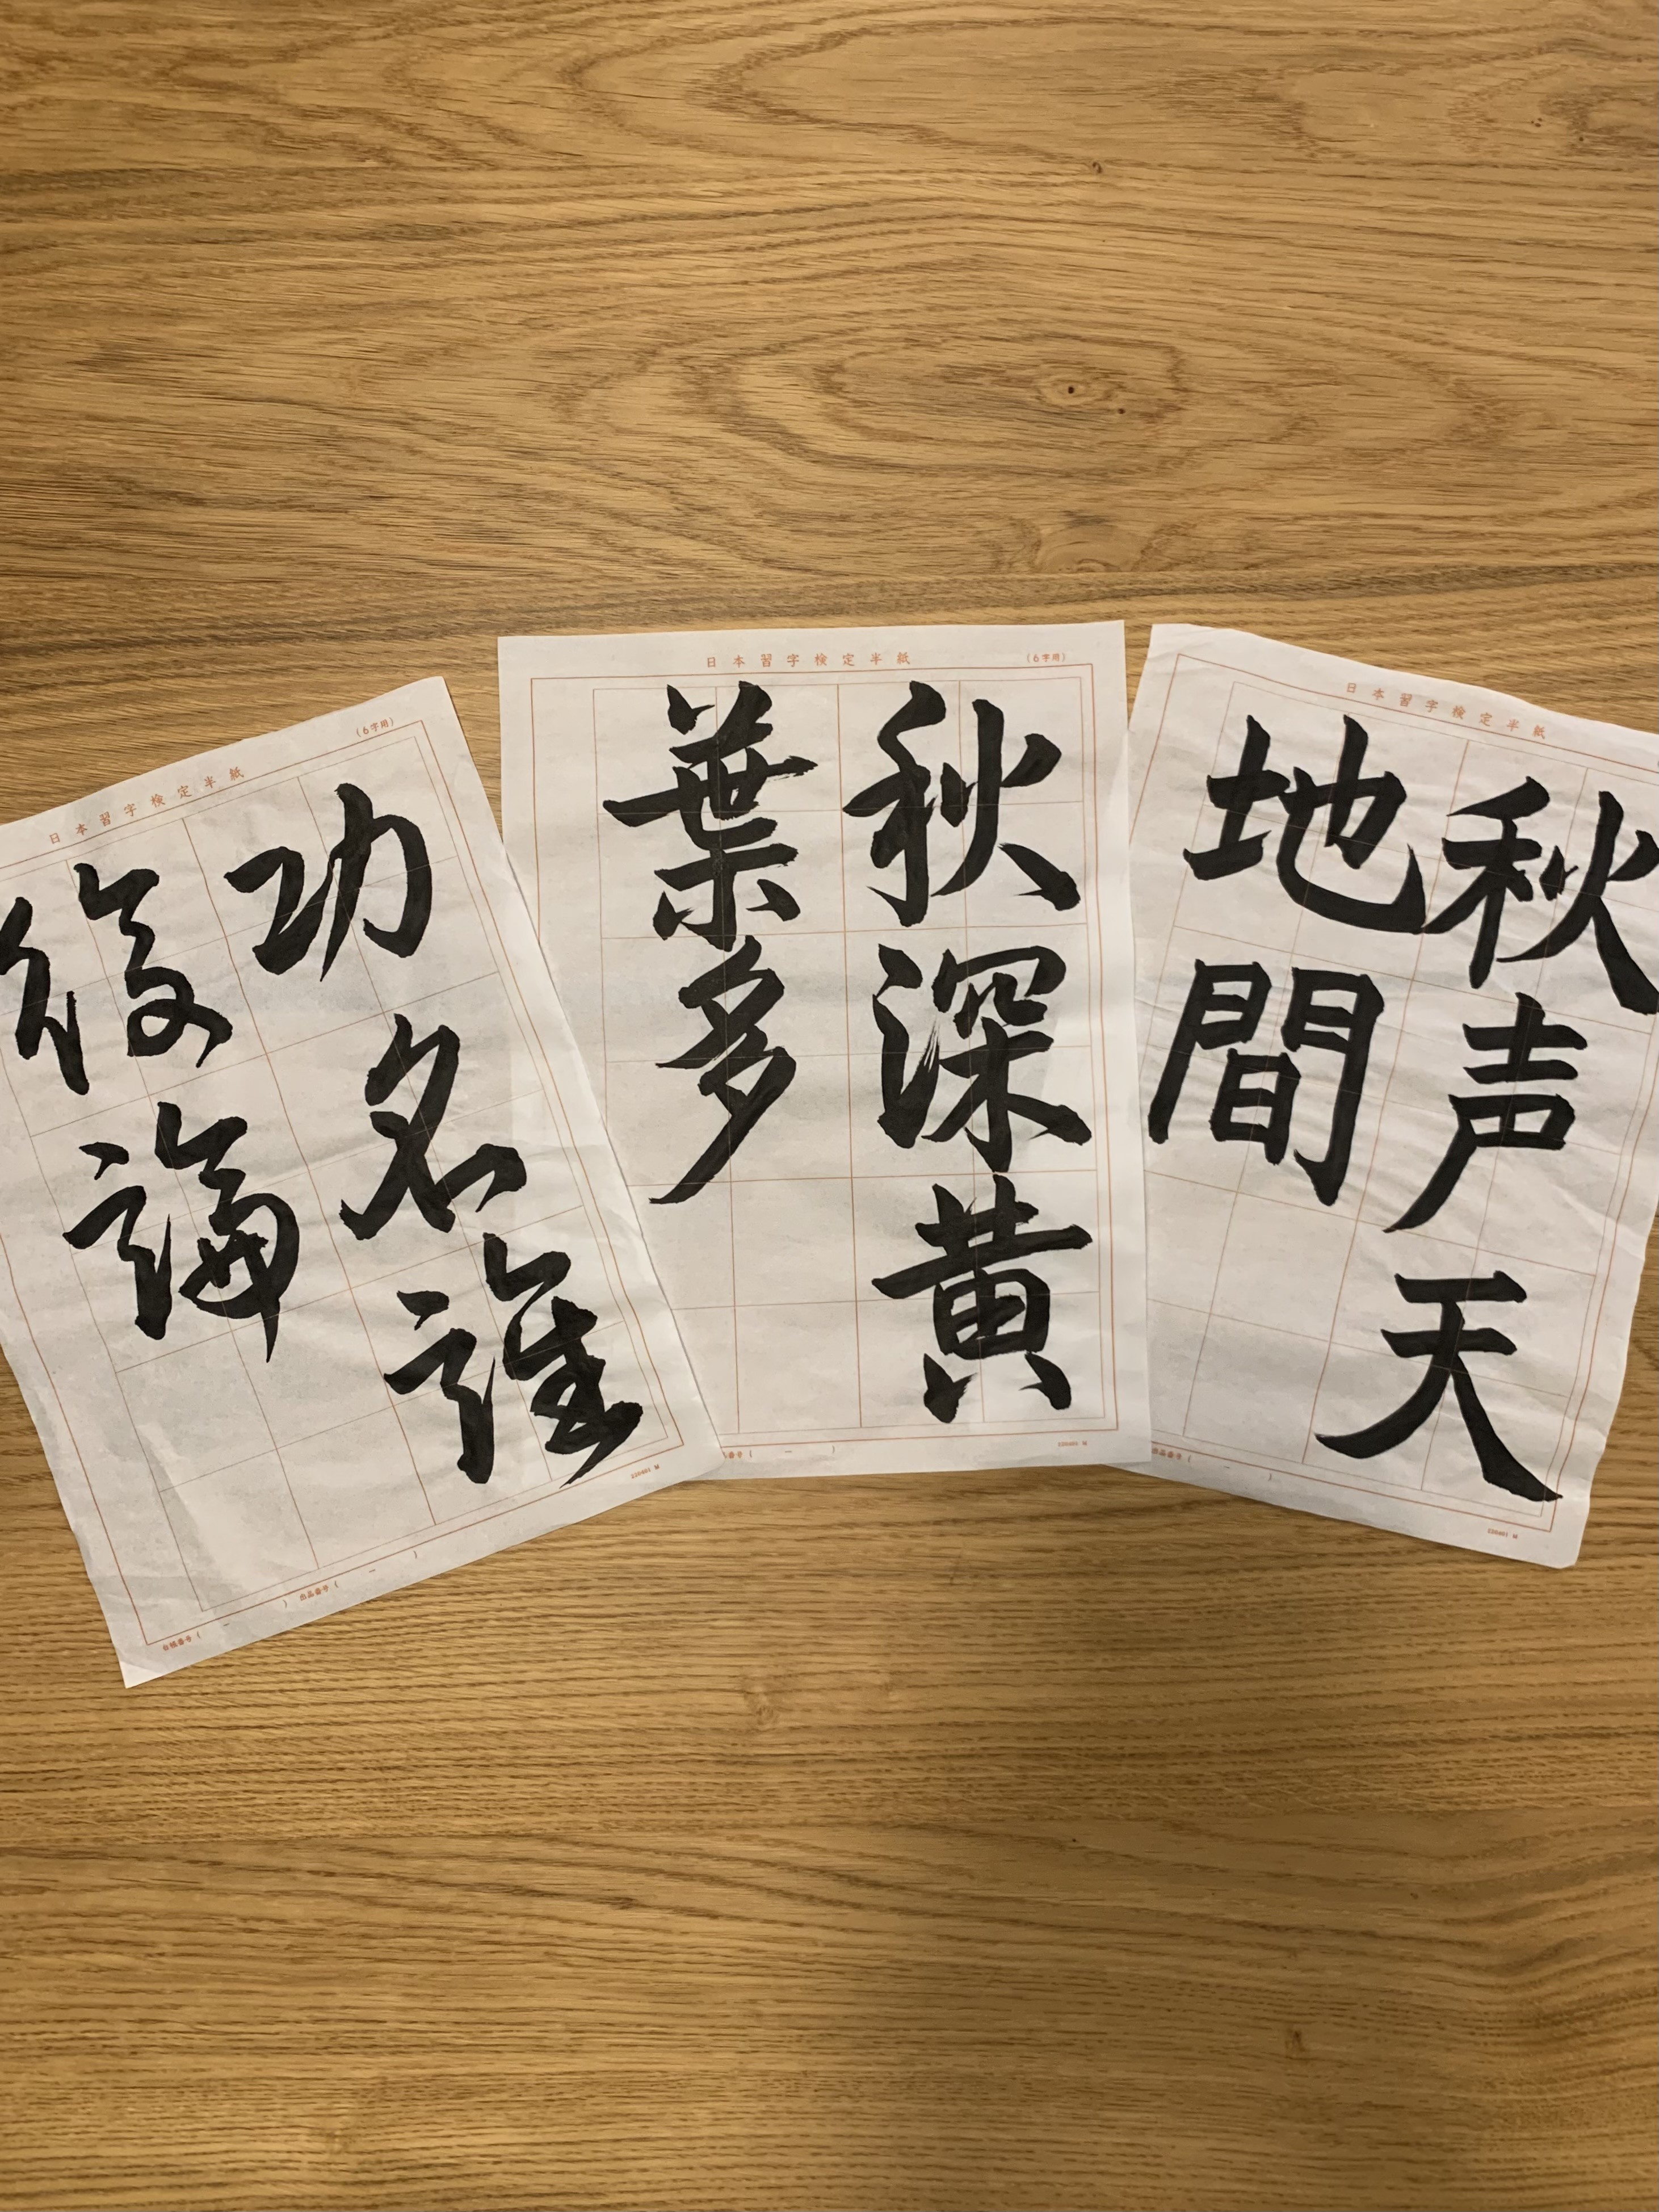 日本習字検定半紙
秋声天
地間
220401 M
日本習字検定半紙
(6字用)
秋深黄
葉多
番号( ー )
220401 M
日本習字検定半紙
(6字用)
功名誰
復論
出品番号( ー )
220401 M